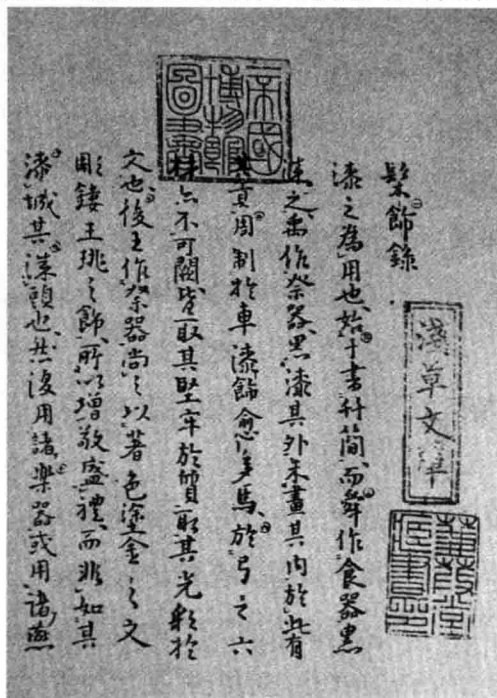 髹飾錄
漆之為用也始于書竹簡而舜作食器黑
漆之禹作祭器黒漆其外朱畫其内於此有
其貢周制於車漆飾愈多焉於弓之六
材亦不可闕皆取其堅牢於質取其光彩於
文也後王作祭器尚之以著色塗金之文
彫鏤玉珧之飾所以增敬盛禮而非如其
漆城其漆頭也然後用諸樂器或用諸燕
帝國
博物館
圖書
淺草文庫
蒹葭堂
藏書印